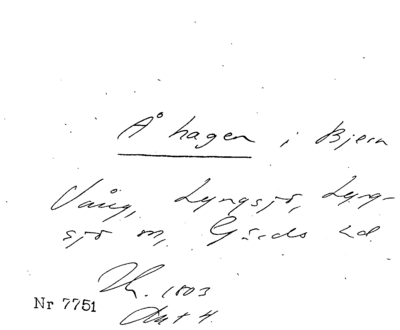 Å hagen i Bjern
Vång, Lyngsjö, Lyng-
sjö sn, Gärds hd
1803
Akt 4.
Nr 7751